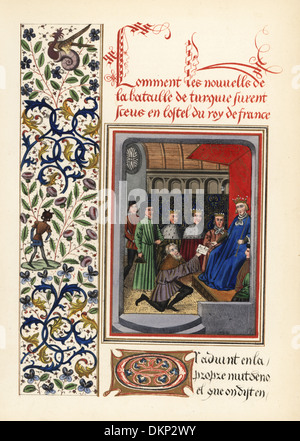 Comment les nouvells de
la bataille de turquie furent
sceus en lostel du roy de france
l advint en la
propre nuit de no
el que on dist en
DKP2WY